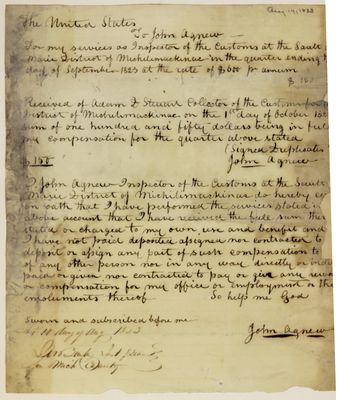 Aug 14, 1823
The United States
To John Agnew
For my services as Inspector of the Customs at the Sault
Marie District of Michilimackinac in the quarter ending
day of September 1823 at the rate of $600 pr annum
$ 150
Received of Adam D Steuart Collector of the Customs for
District of Michilimackinac on the 1st day of October
sum of one hundred and fifty dollars being in full
my compensation for the quarter above stated
(Signed Duplicates
$ 150 John Agnew
I John Agnew Inspector of the Customs at the Sault
Marie District of Michilimackinac do hereby
on oath that I have performed the services stated in
above account that I have received the full sum
stated or charged to my own use and benefit and
I have not paid deposited assigned nor contracted to
deposit or assign any part of such compensation to
of any other person nor in any way directly or
paid or given nor contracted to pay or give any
or compensation for my office or employment or the
emoluments thereof So help me God
Sworn and subscribed before me
John Agnew